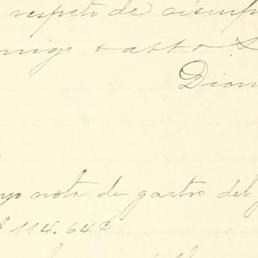 respeto de siempre
amigo & atto S
Dion
nota de gastos del
114.64¢